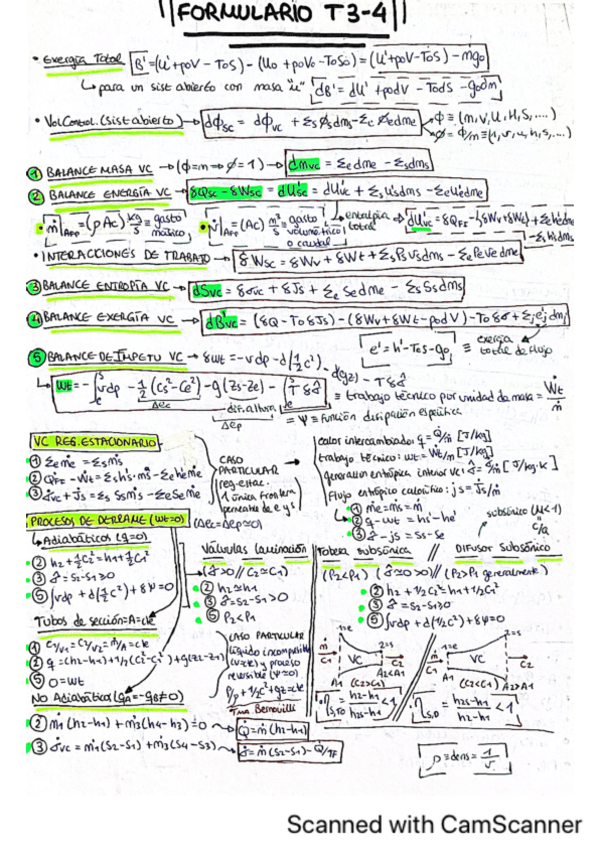 FORMULARIO T3-4
• Exergía Total B'=(U'+p₀V - T₀S) - (U₀ + p₀V₀ - T₀S₀) = (U'+p₀V-T₀S) - mg₀
↳ para un sist abierto con masa "u" dB' = dU' + p₀dV - T₀dS - g₀dm
• Vol.Control.(Sist abierto) → dΦsc = dΦvc + Σsϕsdms - Σe ϕedme → Φ ≡ (m, V, U, H, S, ...)
ϕ = Φ/m ≡ (1, v, u, h, s, ...)
① BALANCE MASA VC → (Φ=m → ϕ=1) → dmvc = Σedme - Σsdms
② BALANCE ENERGÍA VC → δQsc - δWsc = dU'sc = dU'vc + Σs u'sdms - Σe u'edme
• ṁ|App = (ρAc) kg/s ≡ gasto másico
• V̇|App = (Ac) m³/s ≡ gasto volumétrico o caudal
↳ entalpía total → dU'vc = δQFE - (δWv + δWt) + Σe h'edme - Σs h'sdms
• INTERACCIONES DE TRABAJO → δWsc = δWv + δWt + ΣsPsVsdms - ΣePeVedme
③ BALANCE ENTROPÍA VC → dSvc = δσvc + δJs + Σe Sedme - Σs Ssdms
④ BALANCE EXERGÍA VC → dB'vc = (δQ - T₀δJs) - (δWv + δWt - p₀dV) - T₀δσ + Σj e'j dmj
e' = h' - T₀s - g₀ ≡ exergía total de flujo
⑤ BALANCE DE ÍMPETU VC → δwt = -vdp - d(½c²) - d(gz) - Tδσ̂
↳ wt = -∫vdp - ½(Cs² - Ce²) - g(Zs - Ze) - ∫Tδσ̂ ≡ trabajo técnico por unidad de masa = Ẇt/ṁ
Δec
dif. altura
Δep
= ψ ≡ función disipación específica
VC REG. ESTACIONARIO
① Σeṁe = Σsṁs
② Q̇FE - Ẇt = Σs h's·ṁs - Σe h'eṁe
③ σ̇vc + J̇s = Σs Ssṁs - ΣeSeṁe
CASO PARTICULAR
reg. estac.
1 única frontera
permeable de e y s
calor intercambiado: q = Q̇/ṁ [J/kg]
trabajo técnico: wt = Ẇt/ṁ [J/kg]
generación entrópica interior VC: σ̂ = σ̇/ṁ [J/kg·K]
Flujo entrópico calorífico: js = J̇s/ṁ
① ṁe = ṁs = ṁ
② q - wt = hs' - he'
③ σ̂ + js = Ss - Se
subsónico (M<1)
c/a
PROCESOS DE DERRAME (Wt=0) (Δec = Δep ≃ 0)
↳ Adiabáticos (q=0)
② h2 + ½C2² = h1 + ½C1²
③ σ̂ = S2 - S1 ≥ 0
⑤ ∫vdp + d(½c²) + δψ = 0
Tubos de sección = A = cte
① C1/V1 = C2/V2 = ṁ/A = cte
② q = (h2-h1) + 1/2(C2² - C1²) + g(Z2-Z1)
⑤ 0 = wt
No Adiabáticos (qA = -qB ≠ 0)
② ṁ1 (h2-h1) + ṁ3 (h4-h3) = 0 → Q̇ = ṁ (h2-h1)
③ σ̇vc = ṁ1 (S2-S1) + ṁ3 (S4-S3) → σ̇ = ṁ (S2-S1) - Q̇/TF
Válvulas (Laminación)
(σ̂>0 // C2 ≃ C1)
② h2 ≃ h1
③ σ̂ = S2 - S1 > 0
⑤ P2 < P1
CASO PARTICULAR
líquido incompresible
(v=cte) y proceso
reversible (ψ=0)
P/ρ + 1/2C² + gz = cte
Tma Bernouilli
Tobera subsónica // DIFUSOR Subsónico
(P2<P1) (σ̂ ≃ 0) // (P2>P1 generalmente)
② h2 + 1/2C2² = h1 + 1/2C1²
③ σ̂ = S2 - S1 ≥ 0
⑤ ∫vdp + d(1/2c²) + δψ = 0
1=e 2=s VC ṁ C1 C2 A1 (C2>C1) A2<A1
1=e 2=s VC ṁ C1 C2 A1 (C2<C1) A2>A1
η|S,T = h2-h1 / h2s-h1 < 1
η|S,D = h2s-h1 / h2-h1 < 1
ρ = dens = 1/v
Scanned with CamScanner